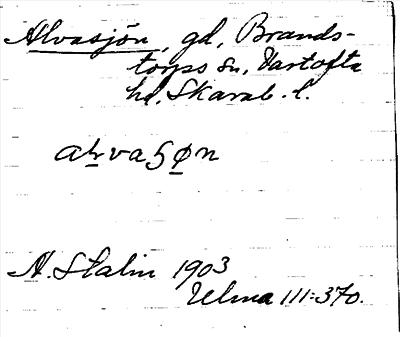 Alvasjön, gd, Brands-
torps sn, Vartofta
hd, Skarab. l.
alvaʂøn
A. Stalin 1903
Ulma 111:370.